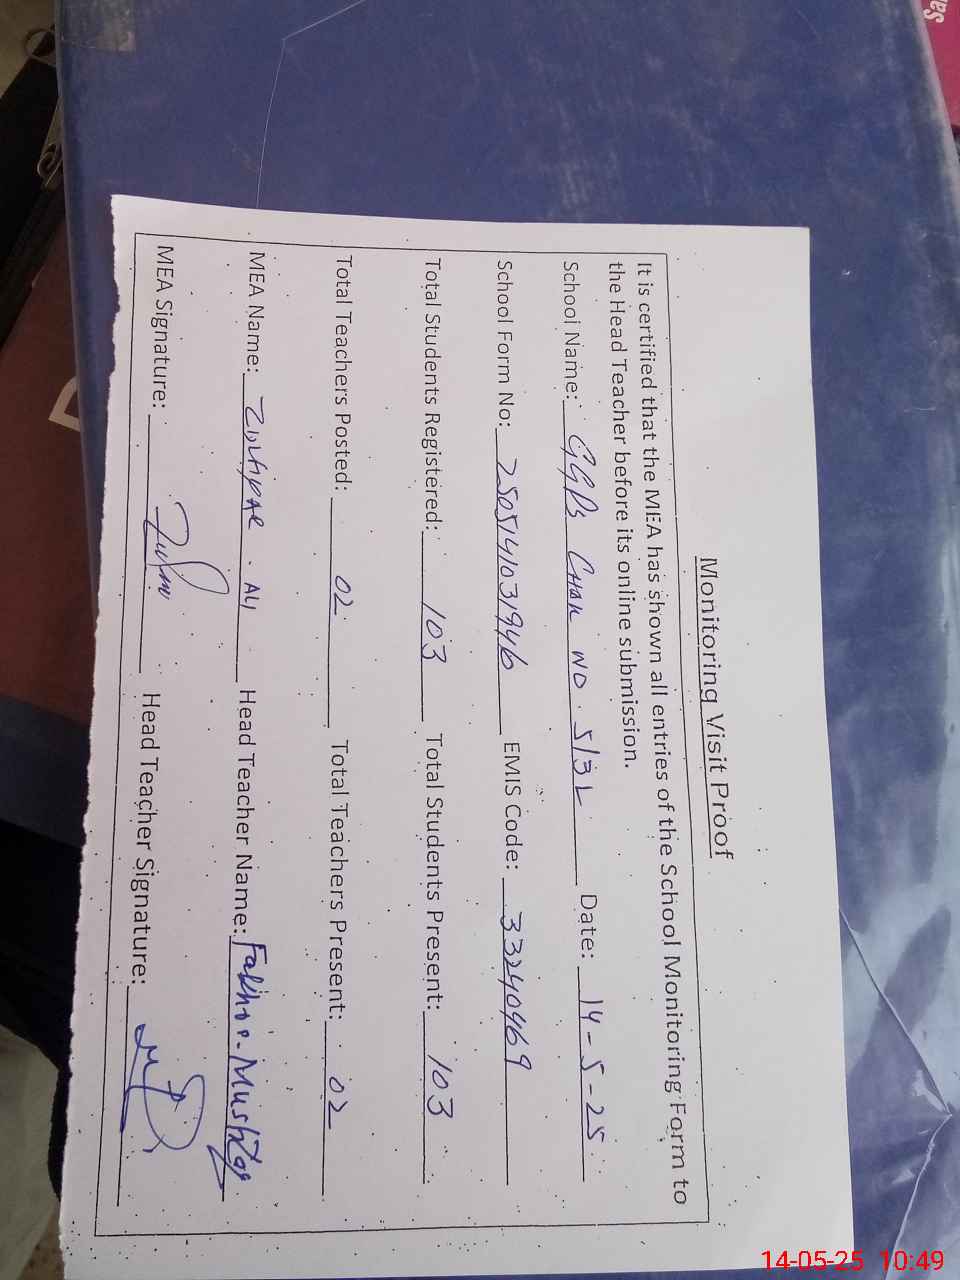 Monitoring Visit Proof
It is certified that the MEA has shown all entries of the School Monitoring Form to
the Head Teacher before its online submission.
School Name: GGPS CHAK NO. 5/3L Date: 14-5-25
School Form No: 2505141031946 EMIS Code: 33240469
Total Students Registered: 103 Total Students Present: 103
Total Teachers Posted: 02 Total Teachers Present: 02
MEA Name: Zulfiqar Ali Head Teacher Name: Fakhra Mushtaq
MEA Signature: Head Teacher Signature:
14-05-25 10:49